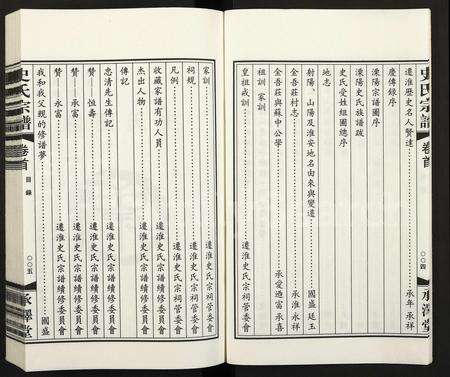 史氏宗譜 卷首 〇〇四 承澤堂
遷淮歷史名人賢達……承年 承祥
慶傳錄序
溧陽宗譜圖序
溧陽史氏族譜跋
史氏受姓組圖總序
地志
射陽、山陽及淮安地名由來與變遷……國盛 延玉
金吾莊村志……承淮 承永
金吾莊與蘇中公學……承愛 迺富 承喜
祖訓 家訓
皇祖戒訓
家訓……遷淮史氏宗祠管委會
祠規……遷淮史氏宗祠管委會
凡例……遷淮史氏宗祠管委會
收藏家譜有功人員
杰出人物……遷淮史氏宗譜續修委員會
傳記
忠清先生傳記……遷淮史氏宗譜續修委員會
贊——恆壽……遷淮史氏宗譜續修委員會
贊——承富……遷淮史氏宗譜續修委員會
贊——永富……遷淮史氏宗譜續修委員會
我和我父親的修譜夢……國盛
史氏宗譜 卷首 目錄 〇〇五 承澤堂